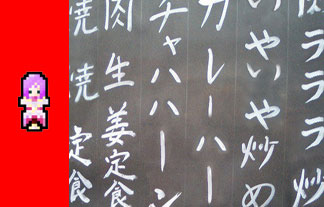 肉ラララ炒
いやいや炒め
カレーハー
チャハハーン
肉生姜定食
焼焼定食